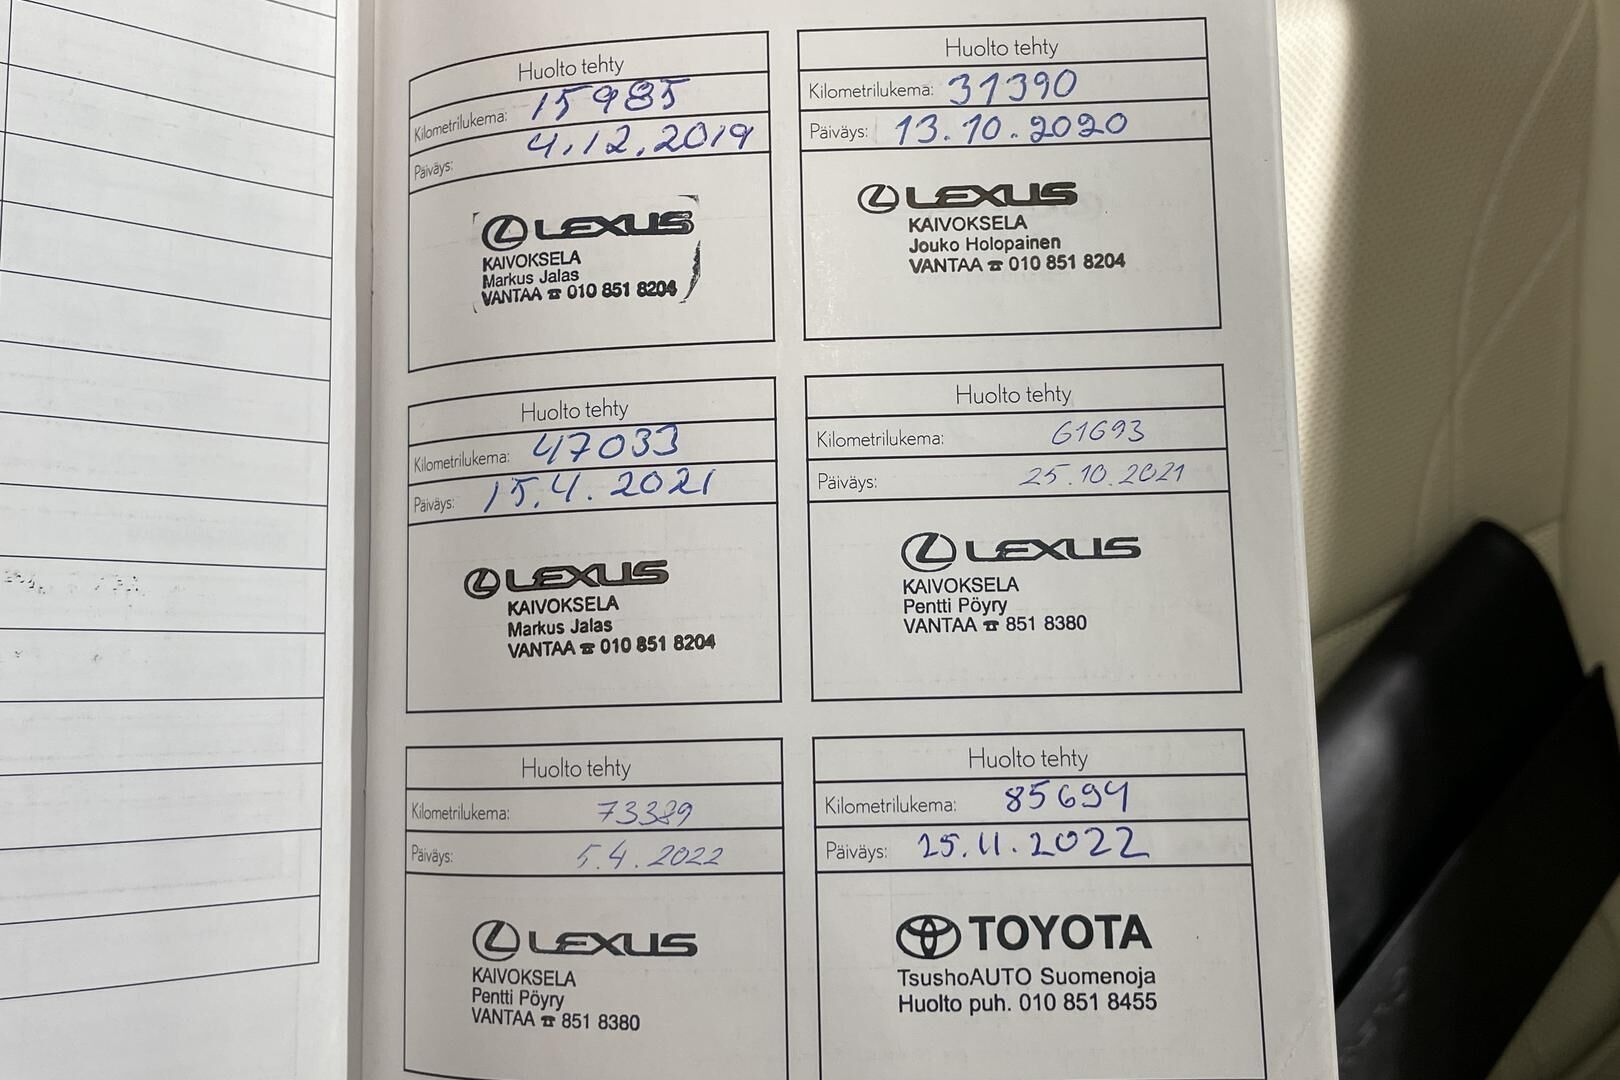 Huolto tehty
Kilometrilukema: 15985
Päiväys: 4.12.2019
LEXUS
KAIVOKSELA
Markus Jalas
VANTAA ☎ 010 851 8204
Huolto tehty
Kilometrilukema: 31390
Päiväys: 13.10.2020
LEXUS
KAIVOKSELA
Jouko Holopainen
VANTAA ☎ 010 851 8204
Huolto tehty
Kilometrilukema: 47033
Päiväys: 15.4.2021
LEXUS
KAIVOKSELA
Markus Jalas
VANTAA ☎ 010 851 8204
Huolto tehty
Kilometrilukema: 61693
Päiväys: 25.10.2021
LEXUS
KAIVOKSELA
Pentti Pöyry
VANTAA ☎ 851 8380
Huolto tehty
Kilometrilukema: 73389
Päiväys: 5.4.2022
LEXUS
KAIVOKSELA
Pentti Pöyry
VANTAA ☎ 851 8380
Huolto tehty
Kilometrilukema: 85694
Päiväys: 25.11.2022
TOYOTA
TsushoAUTO Suomenoja
Huolto puh. 010 851 8455